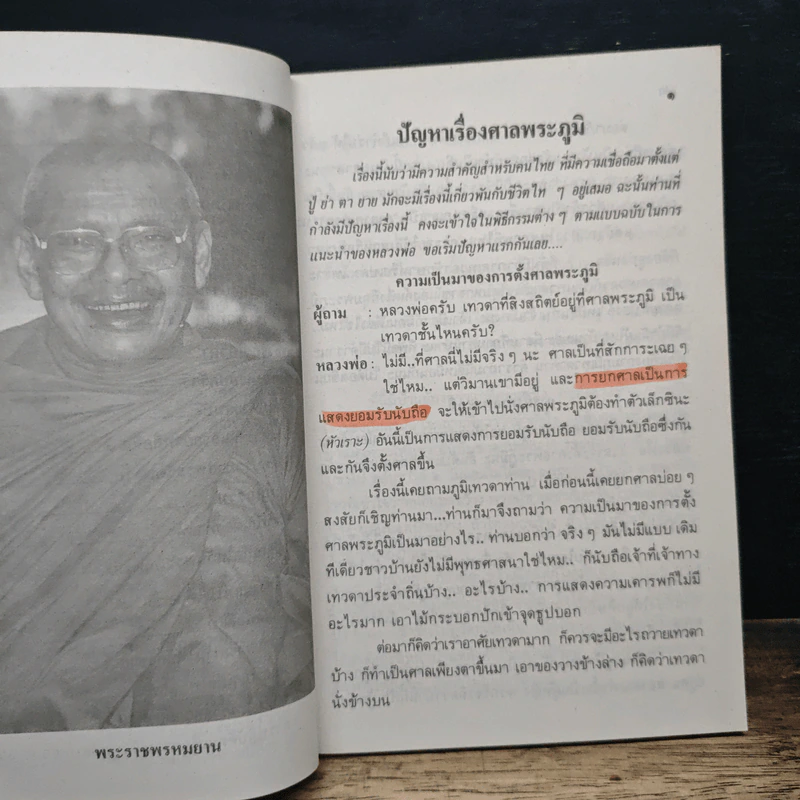 พระราชพรหมยาน
๑
ปัญหาเรื่องศาลพระภูมิ
เรื่องนี้นับว่ามีความสำคัญสำหรับคนไทย ที่มีความเชื่อถือมาตั้งแต่
ปู่ ย่า ตา ยาย มักจะมีเรื่องนี้เกี่ยวพันกับชีวิตไท ๆ อยู่เสมอ ฉะนั้นท่านที่
กำลังมีปัญหาเรื่องนี้ คงจะเข้าใจในพิธีกรรมต่าง ๆ ตามแบบฉบับในการ
แนะนำของหลวงพ่อ ขอเริ่มปัญหาแรกกันเลย....
ความเป็นมาของการตั้งศาลพระภูมิ
ผู้ถาม : หลวงพ่อครับ เทวดาที่สิงสถิตย์อยู่ที่ศาลพระภูมิ เป็น
เทวดาชั้นไหนครับ?
หลวงพ่อ : ไม่มี..ที่ศาลนี่ไม่มีจริง ๆ นะ ศาลเป็นที่สักการะเฉย ๆ
ใช่ไหม.. แต่วิมานเขามีอยู่ และการยกศาลเป็นการ
แสดงยอมรับนับถือ จะให้เข้าไปนั่งศาลพระภูมิต้องทำตัวเล็กซินะ
(หัวเราะ) อันนี้เป็นการแสดงการยอมรับนับถือ ยอมรับนับถือซึ่งกัน
และกันจึงตั้งศาลขึ้น
เรื่องนี้เคยถามภูมิเทวดาท่าน เมื่อก่อนนี้เคยยกศาลบ่อย ๆ
สงสัยก็เชิญท่านมา...ท่านก็มาจึงถามว่า ความเป็นมาของการตั้ง
ศาลพระภูมิเป็นมาอย่างไร.. ท่านบอกว่า จริง ๆ มันไม่มีแบบ เดิม
ทีเดียวชาวบ้านยังไม่มีพุทธศาสนาใช่ไหม.. ก็นับถือเจ้าที่เจ้าทาง
เทวดาประจำถิ่นบ้าง.. อะไรบ้าง.. การแสดงความเคารพก็ไม่มี
อะไรมาก เอาไม้กระบอกปักเข้าจุดธูปบอก
ต่อมาก็คิดว่าเราอาศัยเทวดามาก ก็ควรจะมีอะไรถวายเทวดา
บ้าง ก็ทำเป็นศาลเพียงตาขึ้นมา เอาของวางข้างล่าง ก็คิดว่าเทวดา
นั่งข้างบน